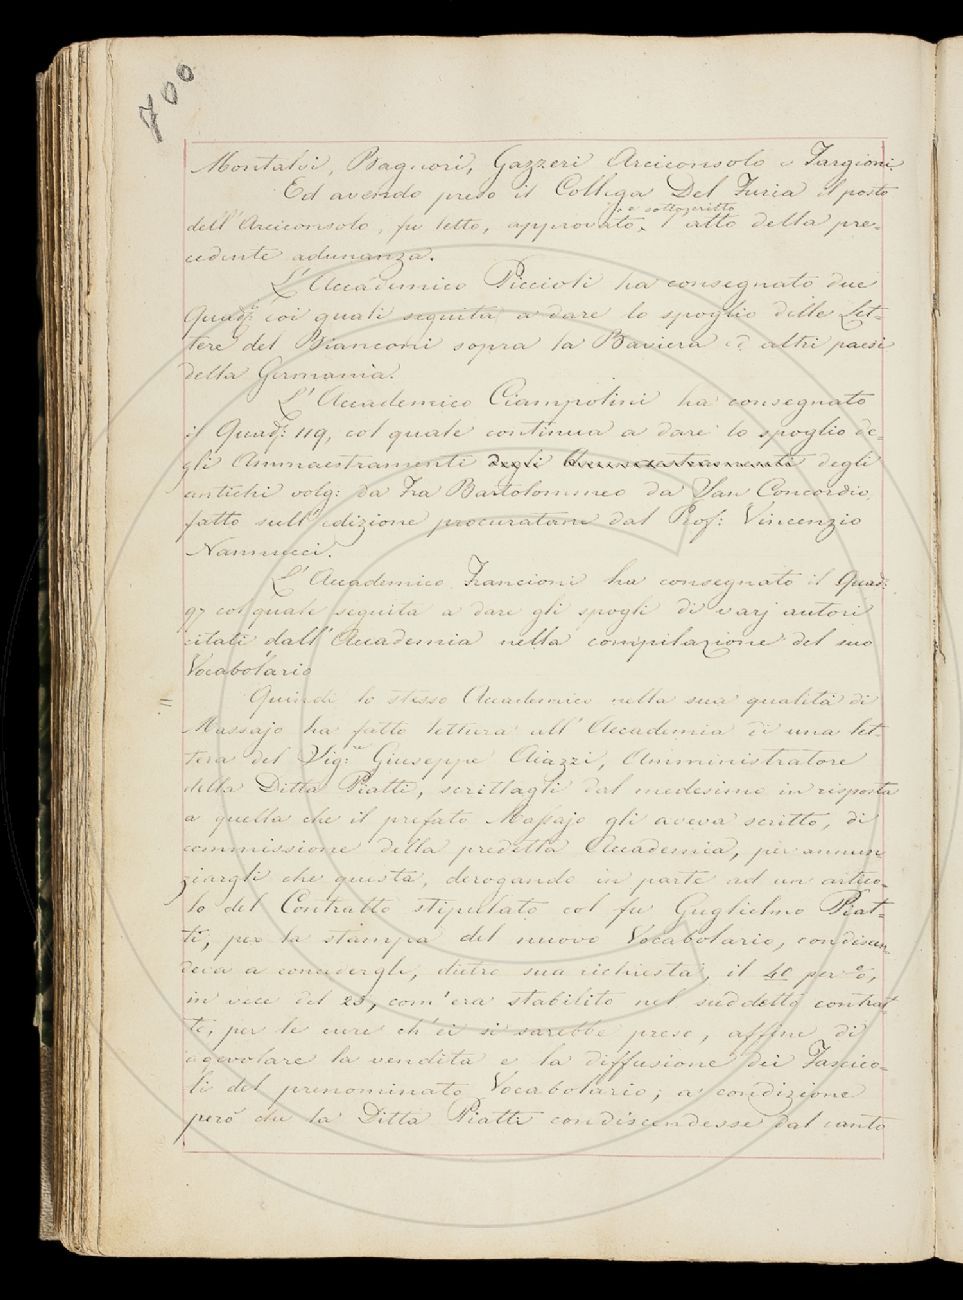 700
Montalvi, Bagnori, Gazzeri Arciconsolo e Targioni.
Ed avendo preso il Collega Del Furia il posto
dell'Arciconsolo, fu letto, approvato, e sottoscritto l'atto della pre-
cedente adunanza.
L'Accademico Piccioli ha consegnato due
Quad.ni coi quali seguita a dare lo spoglio delle Let-
tere del Bianconi sopra la Baviera ed altri paesi
della Germania.
L'Accademico Ciampolini ha consegnato
il Quad: 119, col quale continua a dare lo spoglio de-
gli Ammaestramenti degli Ammaestramenti degli
antichi volg: da Fra Bartolommeo da San Concordio,
fatto sull'edizione procuratane dal Prof: Vincenzio
Nannucci.
L'Accademico Francioni ha consegnato il Quad:
97 col quale seguita a dare gli spogli di varj autori
citati dall'Accademia nella compilazione del suo
Vocabolario
Quindi lo stesso Accademico nella sua qualità di
Massajo ha fatto lettura all'Accademia di una let-
tera del Sig.re Giuseppe Aiazzi, Amministratore
della Ditta Piatti, scrittagli dal medesimo in risposta
a quella che il prefato Massajo gli aveva scritto, di
commissione della predetta Accademia, per annun-
ziargli che questa, derogando in parte ad un artico-
lo del Contratto stipulato col fu Guglielmo Piat-
ti, per la stampa del nuovo Vocabolario, condiscen-
deva a concedergli, dietro sua richiesta, il 40 per %,
in vece del 25, com'era stabilito nel suddetto contrat-
to, per le cure ch'ei si sarebbe prese, affine di
agevolare la vendita e la diffusione dei Fascico-
li del prenominato Vocabolario; a condizione
però che la Ditta Piatti condiscendesse dal canto